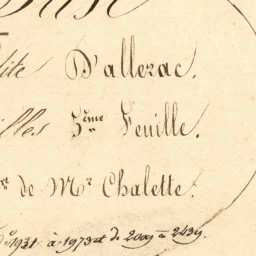 dite D'allezac.
illes 3.ème Feuille.
de Mr Chalette.
1931 à 1973 et de 2009 à 2439.